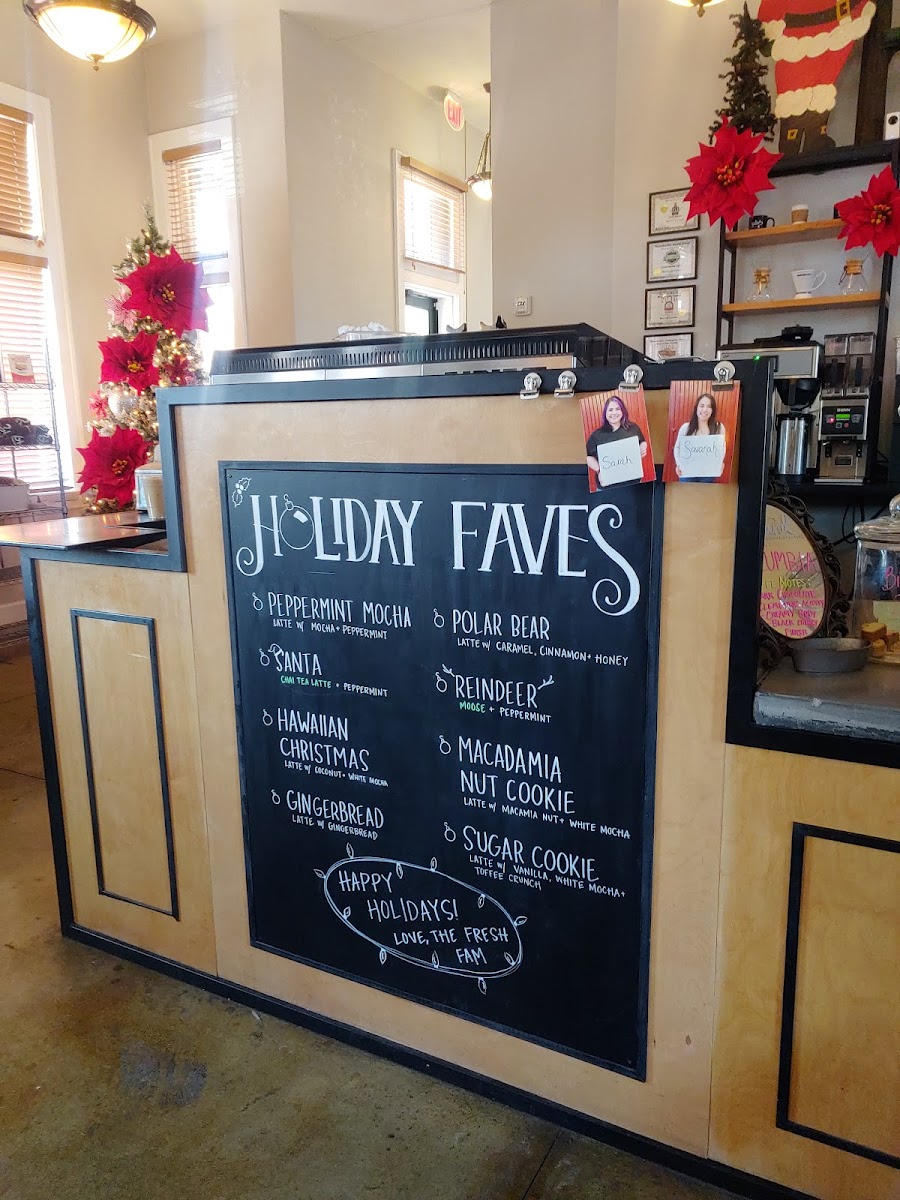 EXIT
Sarah
Savanah
HOLIDAY FAVES
PEPPERMINT MOCHA
LATTE W/ MOCHA + PEPPERMINT
SANTA
CHAI TEA LATTE + PEPPERMINT
HAWAIIAN
CHRISTMAS
LATTE W/ COCONUT + WHITE MOCHA
GINGERBREAD
LATTE W/ GINGERBREAD
POLAR BEAR
LATTE W/ CARAMEL, CINNAMON + HONEY
REINDEER
MOOSE + PEPPERMINT
MACADAMIA
NUT COOKIE
LATTE W/ MACAMIA NUT + WHITE MOCHA
SUGAR COOKIE
LATTE W/ VANILLA, WHITE MOCHA +
TOFFEE CRUNCH
HAPPY
HOLIDAYS!
LOVE, THE FRESH
FAM
NOTES: